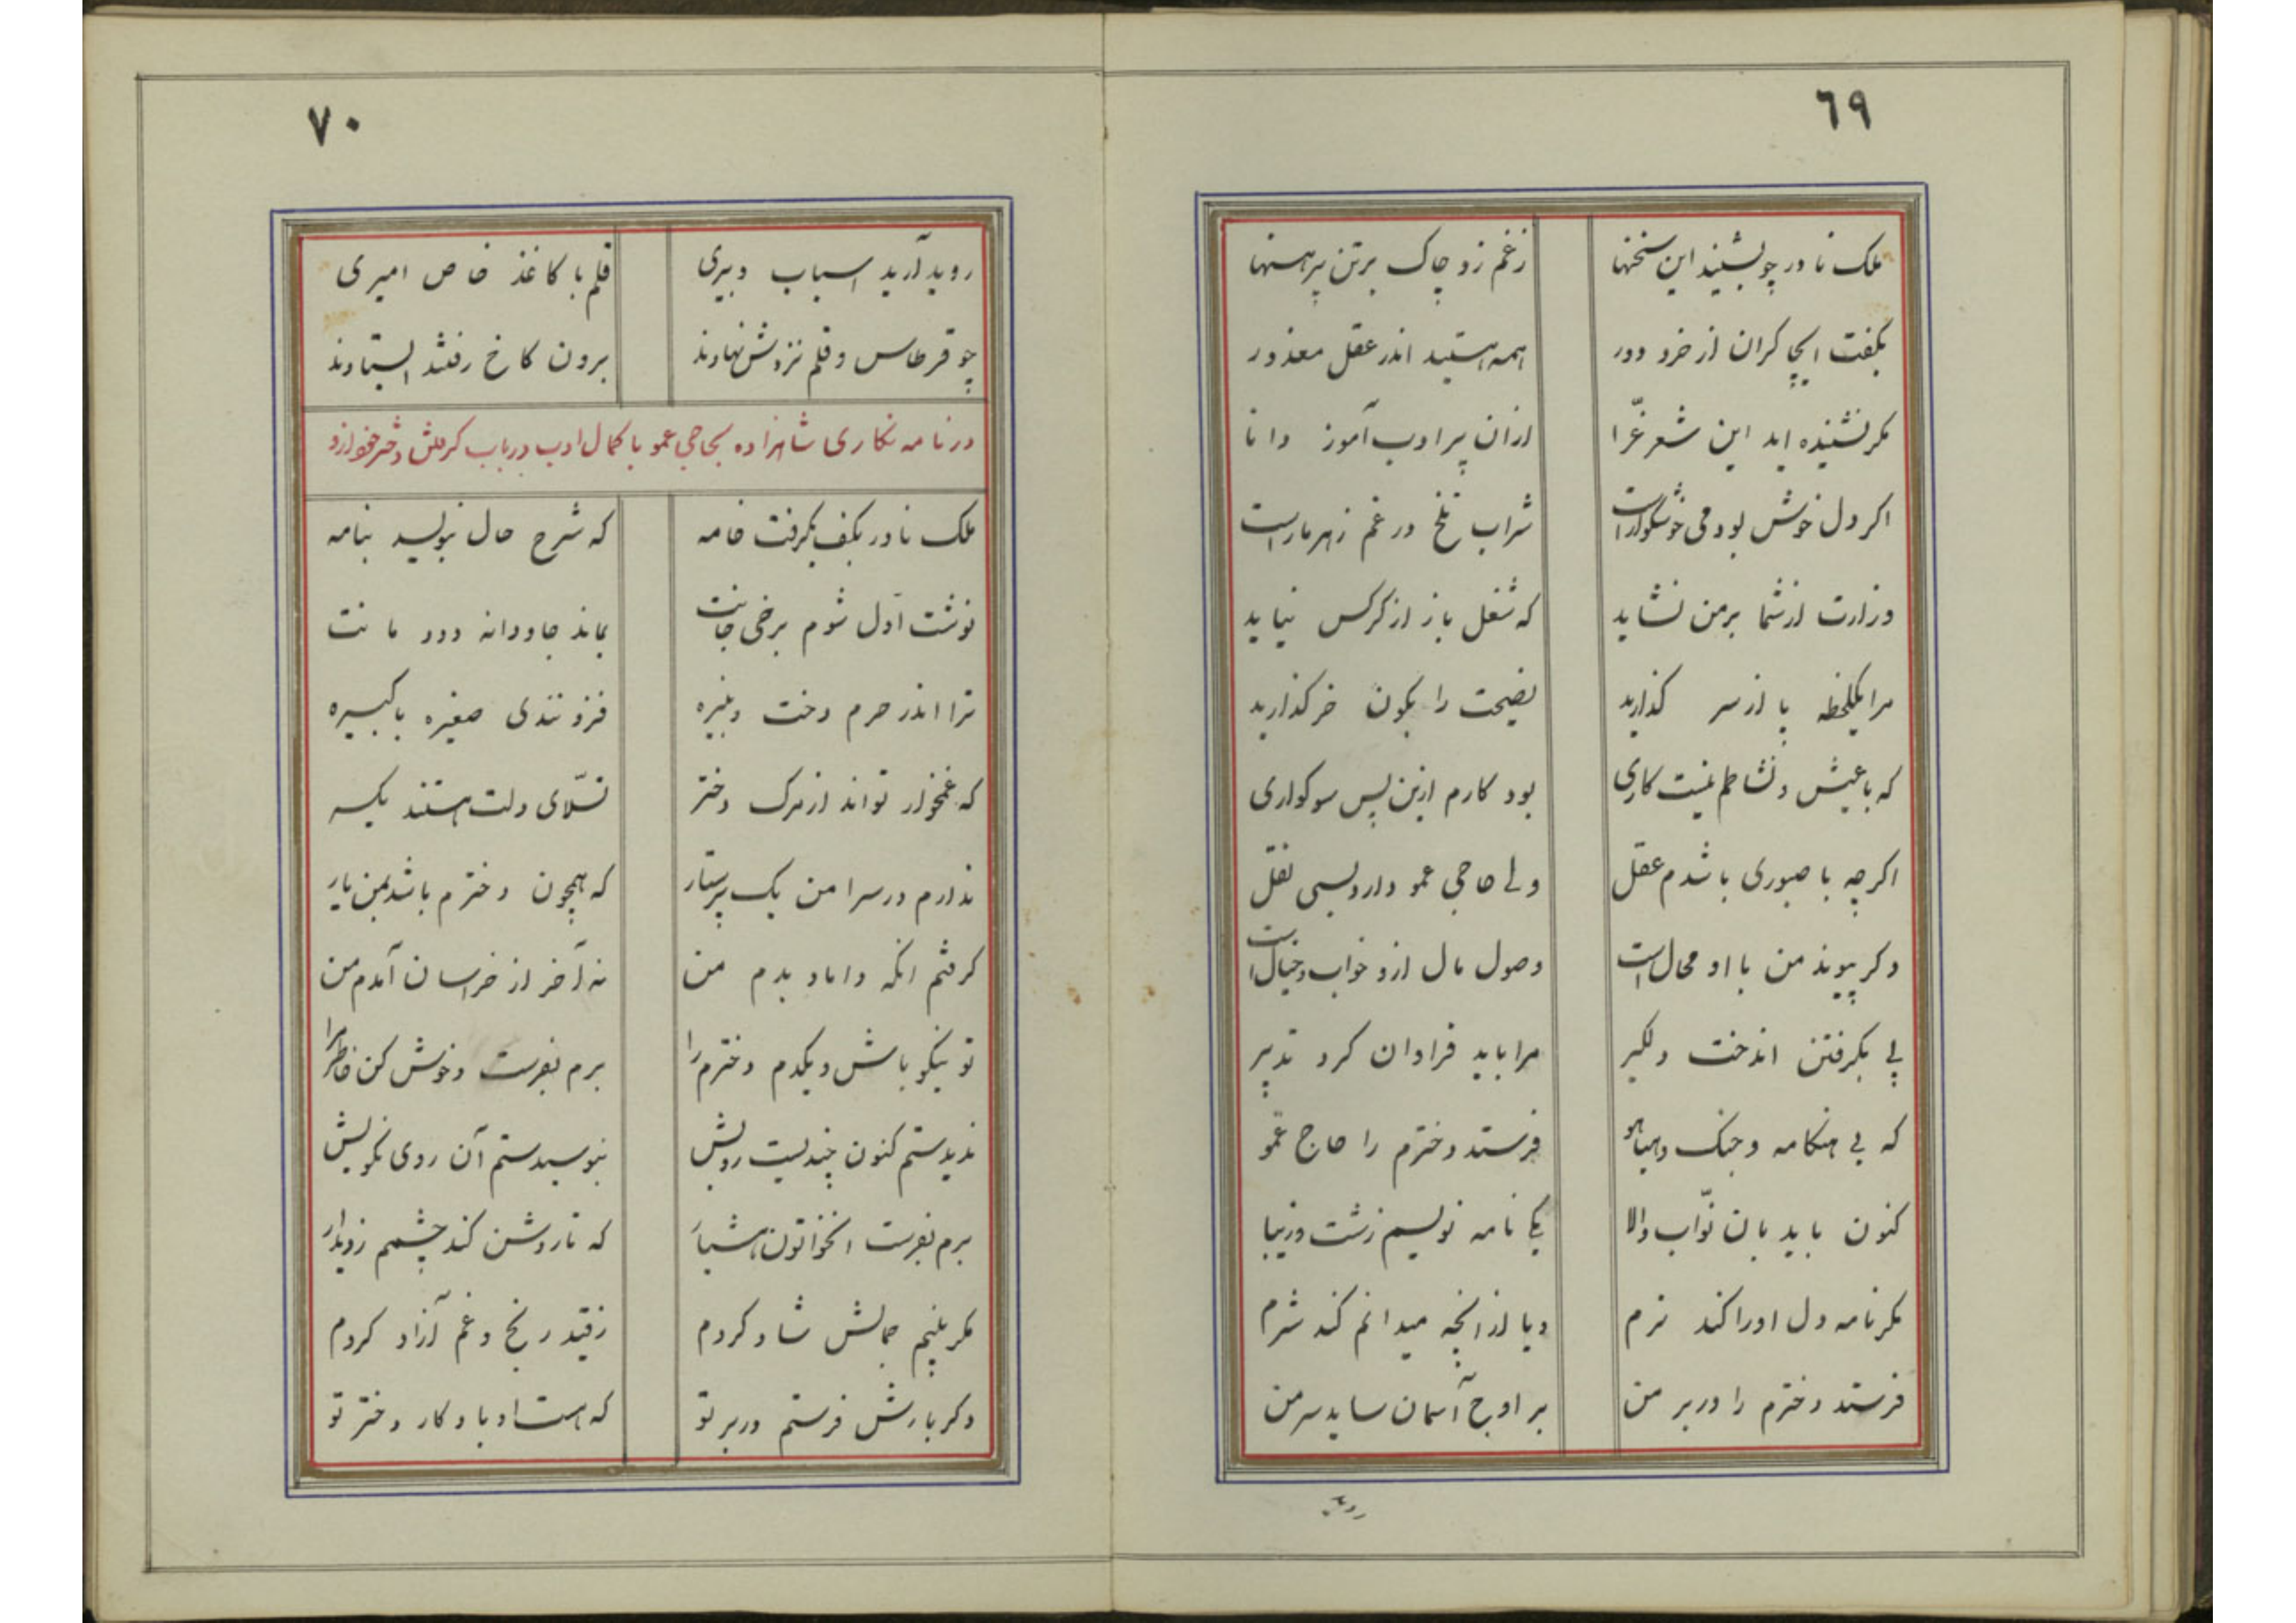 ٦٩
ملک نادر چو بشنید این سخنها زغم زد چاک برتن پیرهنها
بگفت ایچاکران از خرد دور همه هستید اندر عقل معذور
مکر نشنیده اید این شعر غرّا ازان پیر ادب آموز دانا
اکر دل خوش بود می خوشکوار است شراب تلخ در غم زهر مار است
وزارت از شما برمن نشاید که شغل باز از کرکس نیاید
مرا یکلحظه پا از سر کذارید نصیحت را بکون خر کذارید
که با عیش و نشاطم نیست کاری بود کارم ازین پس سوکواری
اکرچه با صبوری باشدم عقل ولی حاجی عمو دارد بسی نقل
وکر پیوند من با او محال است وصول مال ازو خواب و خیال است
پی بکرفتن اندخت دلکیر مرا باید فراوان کرد تدبیر
که بی هنکامه و جنک و هیاهو فرستد دخترم را حاج عمّو
کنون باید بان نوّاب والا یکی نامه نویسم زشت و زیبا
مکر نامه دل اورا کند نرم ویا از انچه میدانم کند شرم
فرستد دخترم را در بر من بر اوج آسمان ساید سر من
روید
٧٠
روید آرید اسباب دبیری قلم با کاغذ خاص امیری
چو قرطاس و قلم نزدش نهادند برون کاخ رفتند ایستادند
در نامه نکاری شاهزاده بحاجی عمو با کمال ادب در باب کرفتن دختر خود ازو
ملک نادر بکف بکرفت خامه که شرح حال بنویسد بنامه
نوشت اوّل شوم برخی جانت بماند جاودانه دودمانت
ترا اندر حرم دخت و نبیره فزونندی صغیره یا کبیره
که غمخوار تواند از مرک دختر تسلّای دلت هستند یکسر
ندارم در سرا من یک پرستار که همچون دخترم باشد بمن یار
کرفتم انکه داماد بدم من نه آخر از خراسان آمدم من
تو نیکو باش و یکدم دخترم را برم بفرست و خوش کن خاطرم را
ندیدستم کنون چندیست رویش نبوسیدستم آن روی نکویش
برم بفرست انخواتون هشیار که تا روشن کند چشمم ز دیدار
مکر بینم جمالش شاد کردم زقید رنج و غم آزاد کردم
وکر بارش فرستم در بر تو که هست او یادکار دختر تو